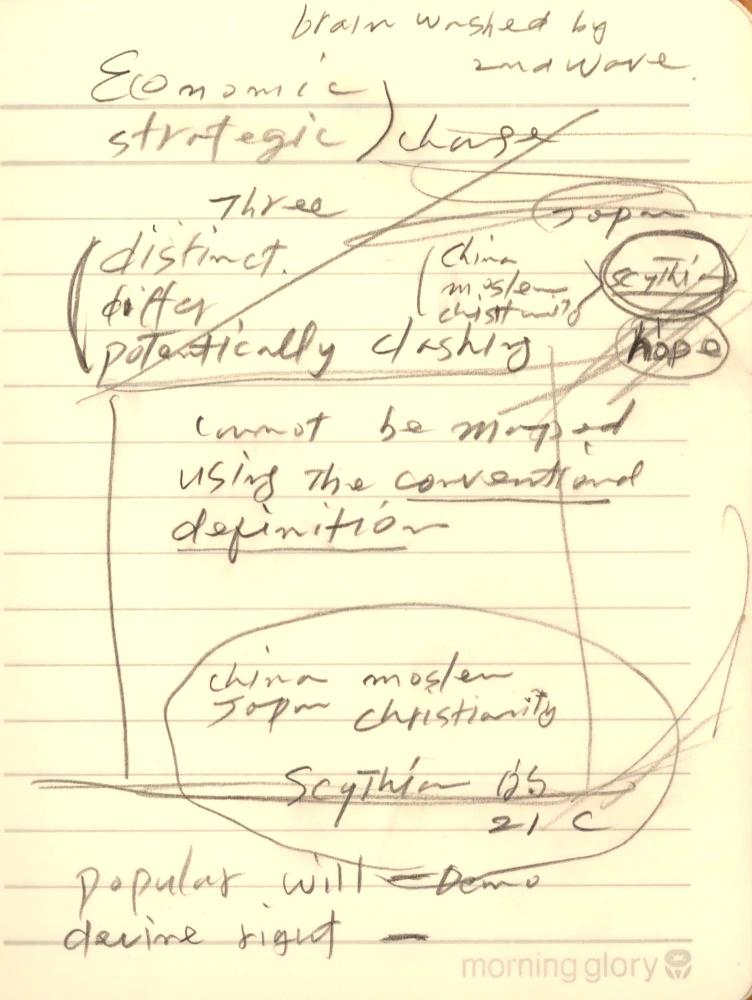 brain washed by
2nd wave.
Economic
strategic ) change
Three
Japan
distinct.
differ
potentically clashing
China
moslem
christianity
scythian
hope
cannot be mapped
using the conventional
definition
china moslem
Japan christianity
Scythian
21 C
popular will = Demo
devine right —
morning glory